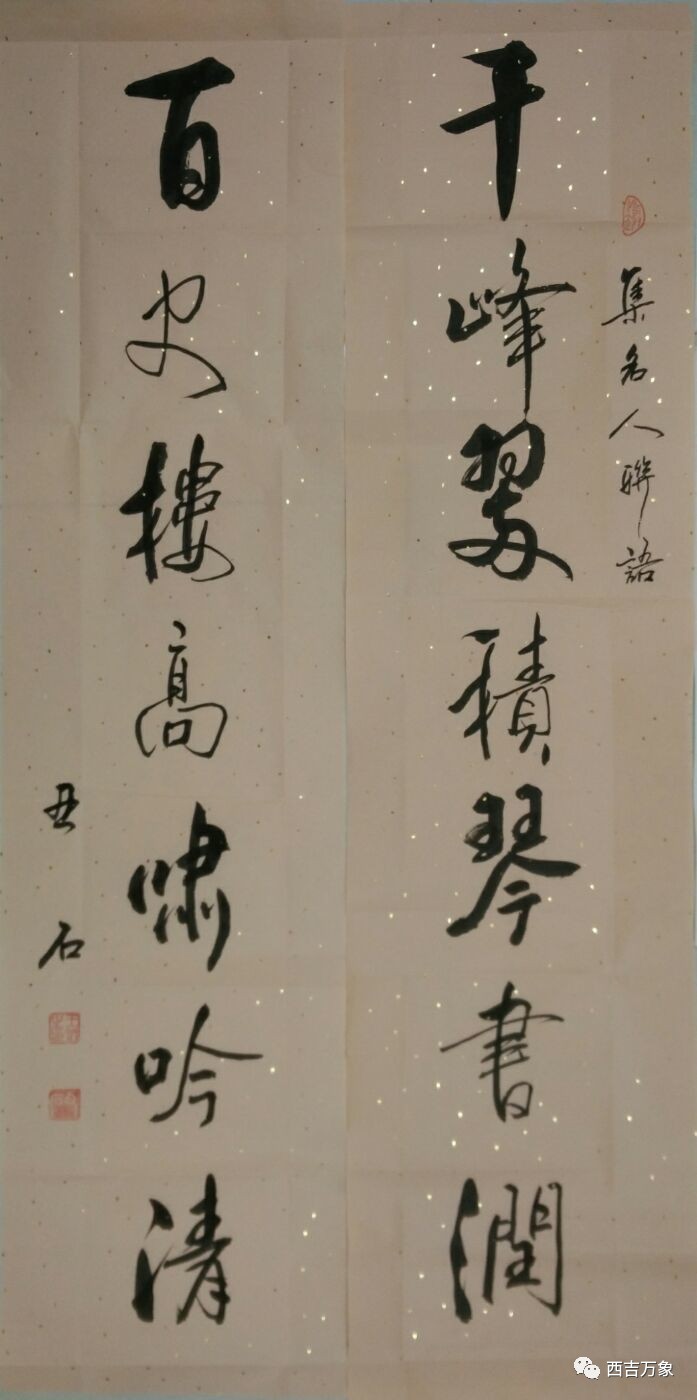 集名人聯語
千峰翠積琴書潤
百尺樓高嘯吟清
丑石
西吉万象